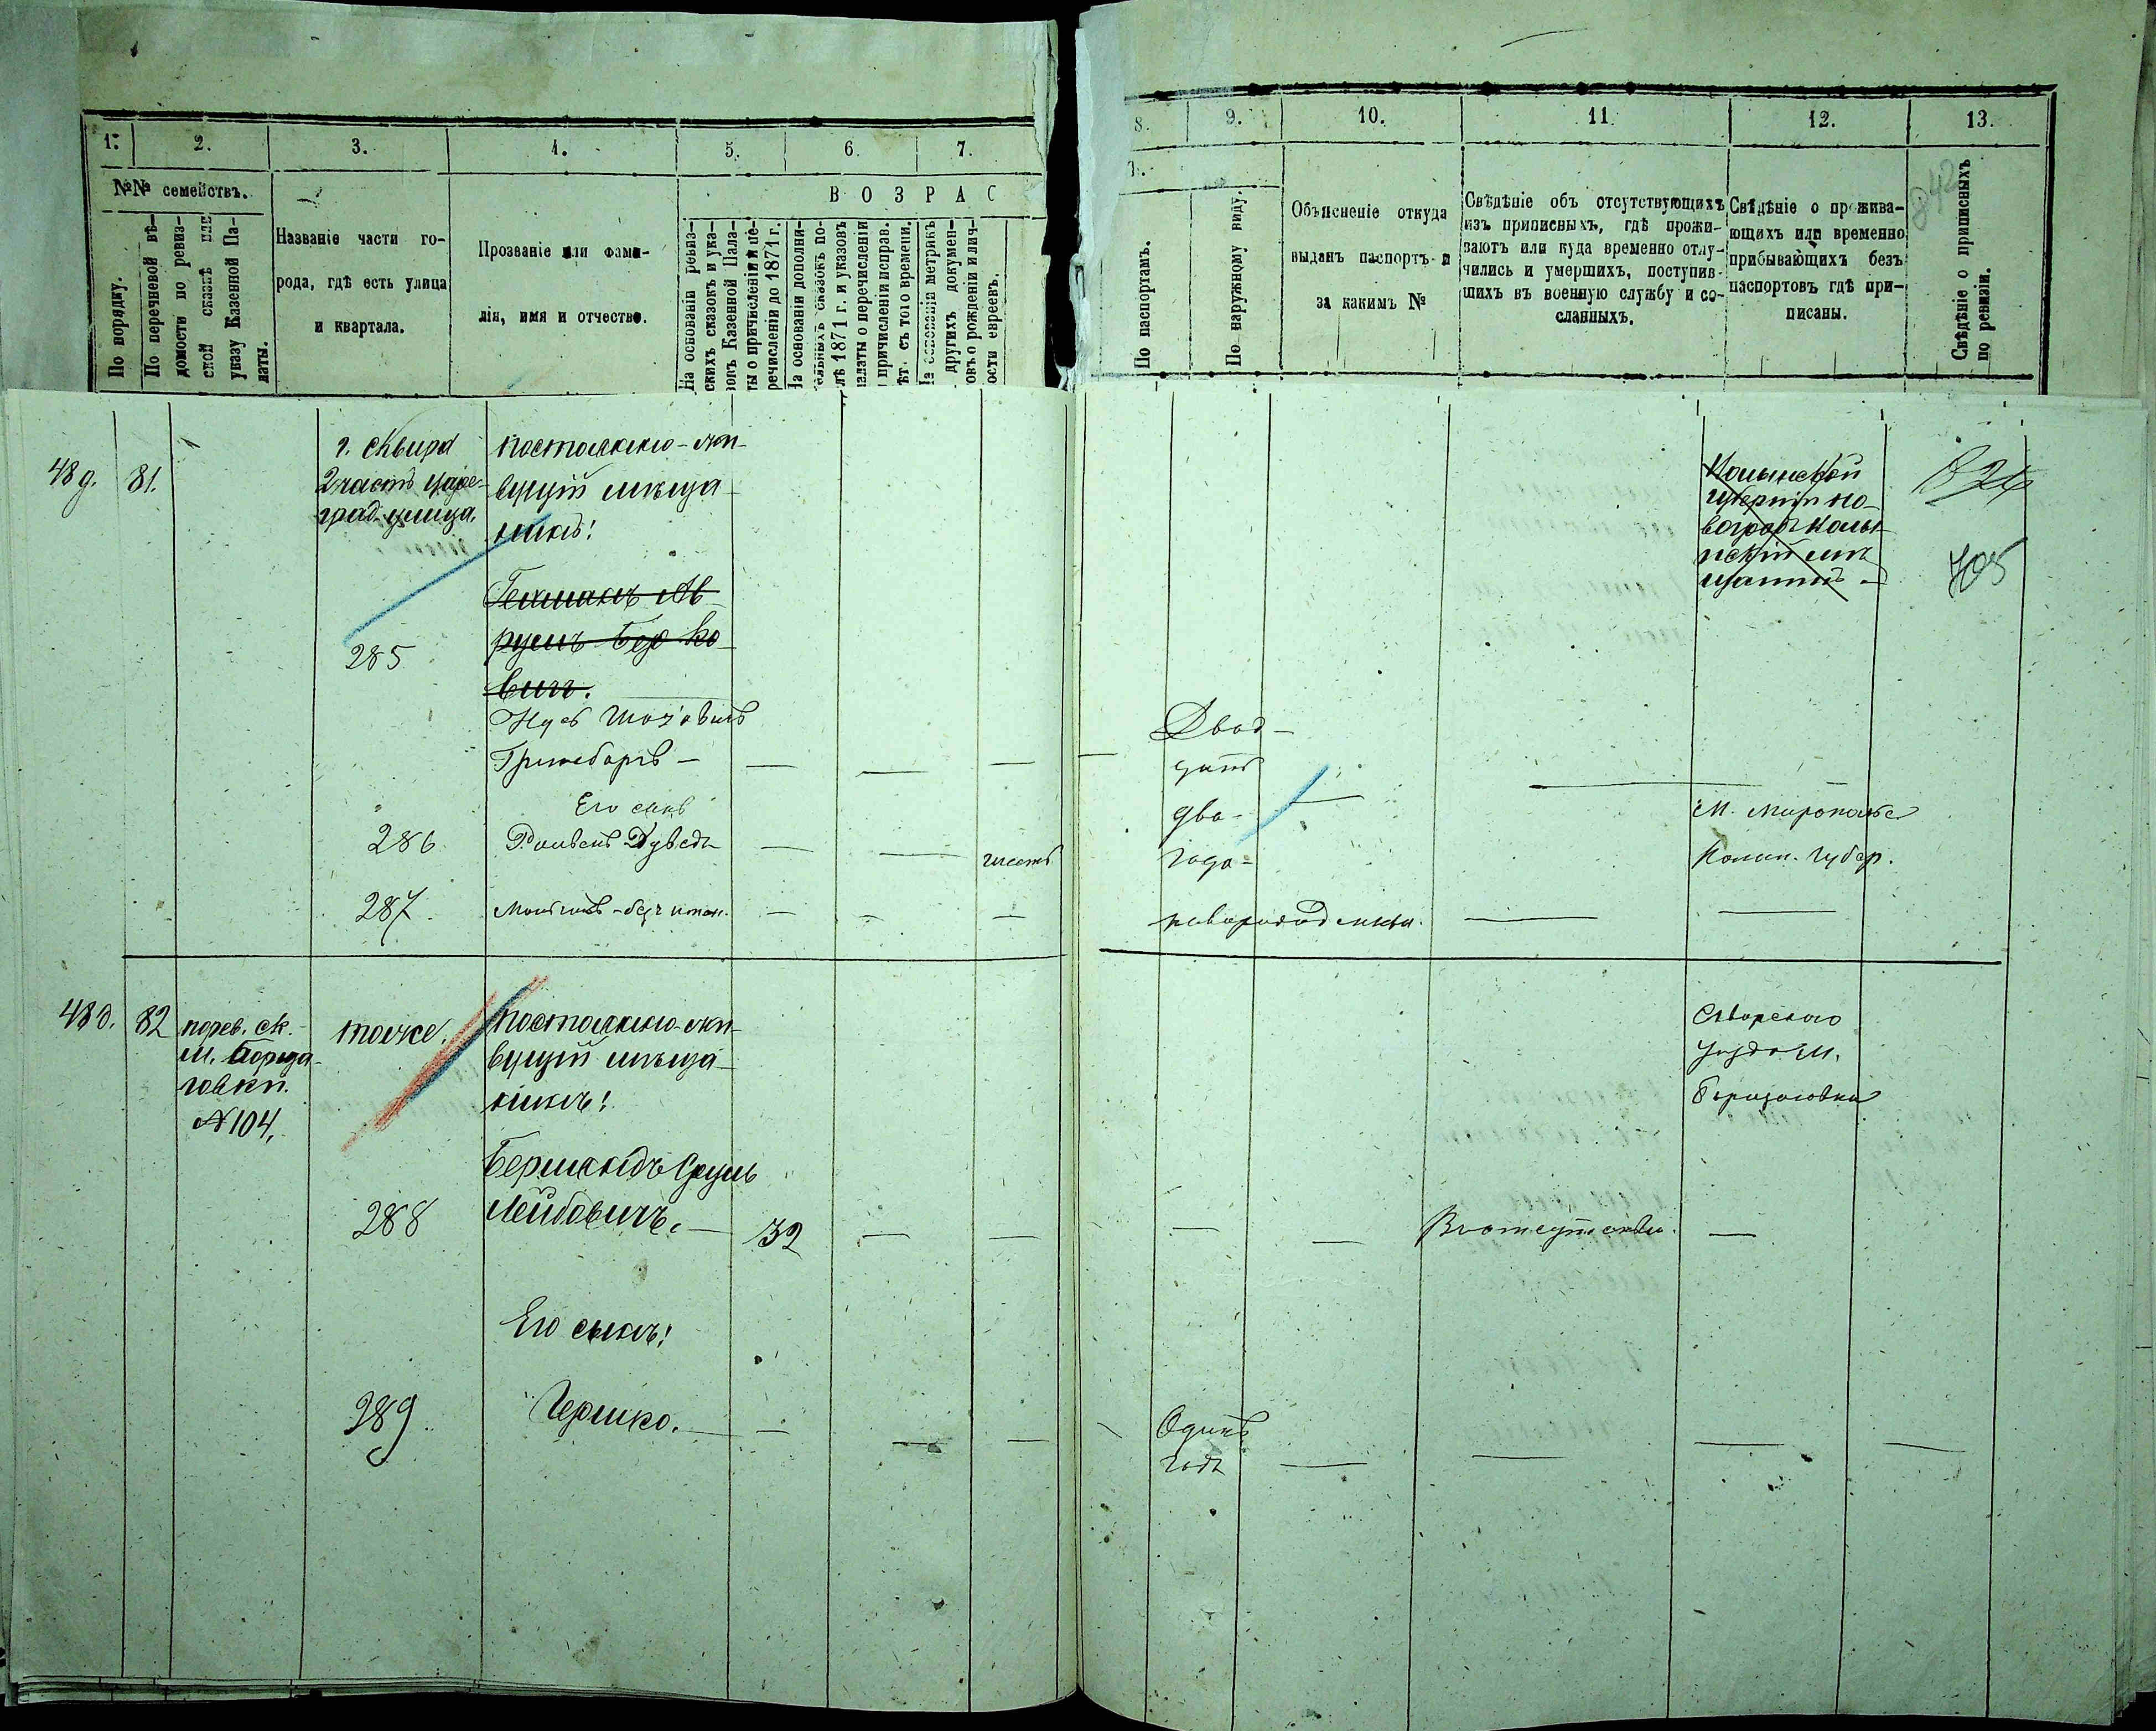 1. 2. 3. 4. 5. 6. 7.
№№ семействъ.
По порядку.
По перечневой вѣ-
домости по ревиз-
ской сказкѣ или
указу Казенной Па-
латы.
Названіе части го-
рода, гдѣ есть улица
и квартала.
Прозваніе или фами-
лія, имя и отчество.
ВОЗРАС
На основаніи ревиз-
скихъ сказокъ и ука-
зовъ Казенной Пала-
ты о причисленіи и пе-
речисленіи до 1871 г.
На основаніи дополни-
тельныхъ сказокъ по-
слѣ 1871 г. и указовъ
палаты о перечисленіи
и причисленіи исправ.
лѣт. съ того времени.
На основаніи метрикъ
другихъ докумен-
овъ о рожденіи и лич-
ости евреевъ.
8. 9. 10. 11. 12. 13.
По паспортамъ.
По наружному виду.
Объясненіе откуда
выданъ паспортъ и
за какимъ №
Свѣдѣніе объ отсутствующихъ
изъ приписныхъ, гдѣ прожи-
ваютъ или куда временно отлу-
чились и умершихъ, поступив-
шихъ въ военную службу и со-
сланныхъ.
Свѣдѣніе о прожива-
ющихъ или временно
прибывающихъ безъ
паспортовъ гдѣ при-
писаны.
Свѣдѣніе о приписныхъ
по ревизіи.
842
48 д. 81.
г. Сквира
2 часть Царе-
град. улица.
постоянно-жи-
вущій мѣща-
нинъ!
Гехманъ Ав-
румъ Берко-
вичъ.
285
Гринебаргъ —
Двад-
цать
два-
года-
Волынской
губерніи но-
воградъ Волы-
нскій мѣ-
щанинъ
824
705
Его сынъ
286
шесть
М. Мирополье
Волын. Губер.
287
новорожденный.
48 д. 82
порев. ск.
м. Борща-
говки.
№ 104.
тоже.
постоянно-жи-
вущій мѣща-
нинъ!
Берманъ Сруль
Лейбовичъ. —
288
32
Въ отсутствіи.
Сквирского
уѣзда м.
Борщаговки
Его сынъ!
289
Гершко.
Одинъ
годъ